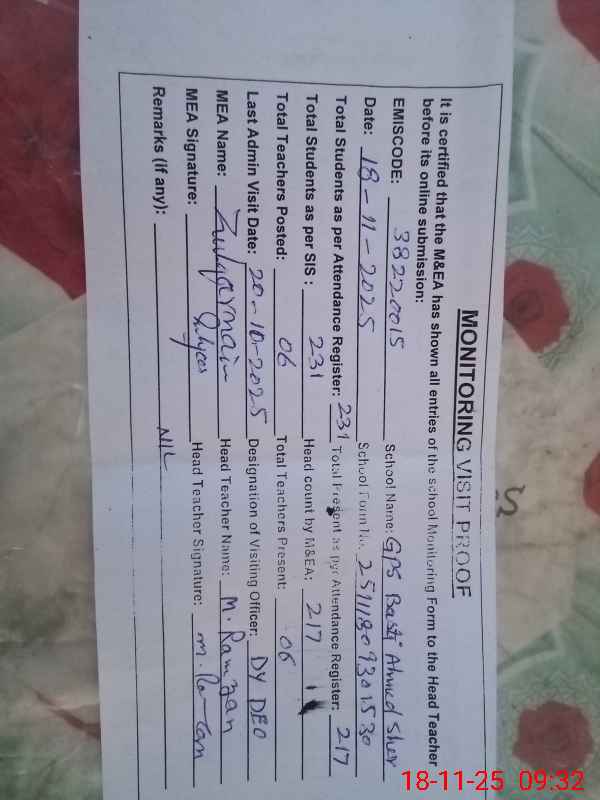 MONITORING VISIT PROOF
It is certified that the M&EA has shown all entries of the school Monitoring Form to the Head Teacher
before its online submission:
EMISCODE: 38220015 School Name: GPS Basti Ahmed Sher
Date: 18-11-2025 School Form No.
Total Students as per Attendance Register: 231 Total Present as per Attendance Register: 217
Total Students as per SIS : 231 Head count by M&EA: 217
Total Teachers Posted: 06 Total Teachers Present: 06
Last Admin Visit Date: 20-10-2025 Designation of Visiting Officer: DY DEO
MEA Name: Zulqarnain Head Teacher Name: M. Ramzan
MEA Signature: Head Teacher Signature:
Remarks (If any): NIL
18-11-25 09:32